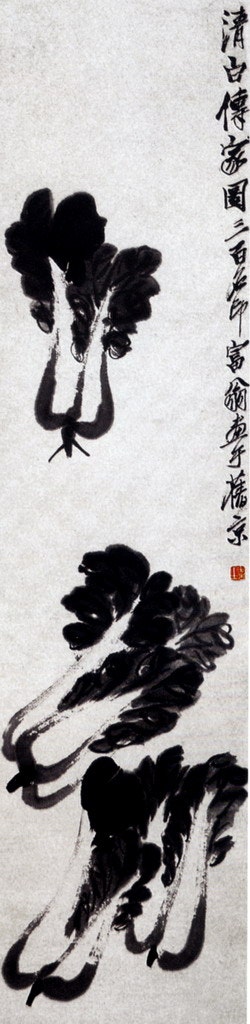 清白傳家圖三百石印富翁畫于舊京